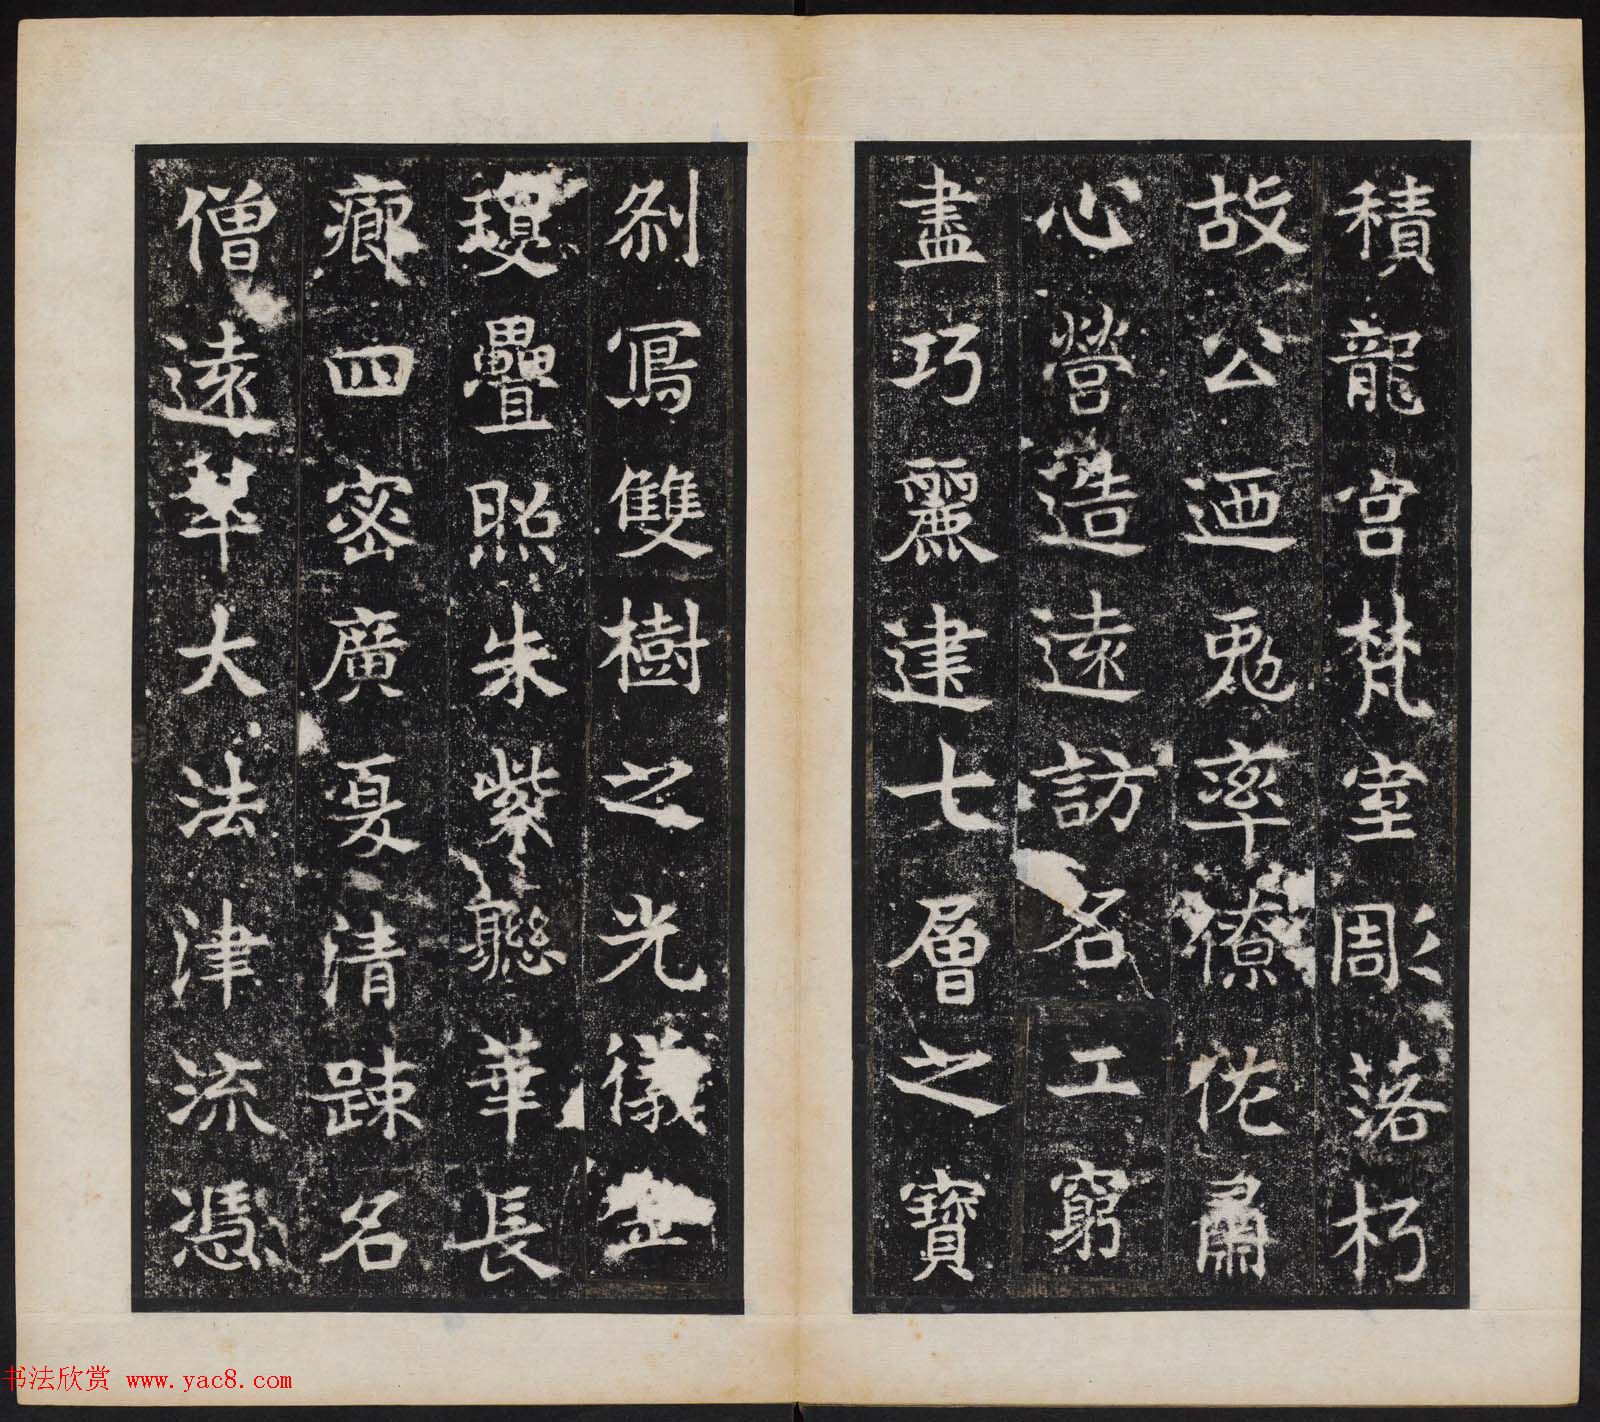 積龍宮梵室彫落朽
故公迺勉率僚佐肅
心營造遠訪名工窮
盡巧麗建七層之寶
刹寫雙樹之光儀金
瓊疊照朱紫聯華長
廊四密廣夏清踈名
僧遠萃大法津流憑
书法欣赏 www.yac8.com